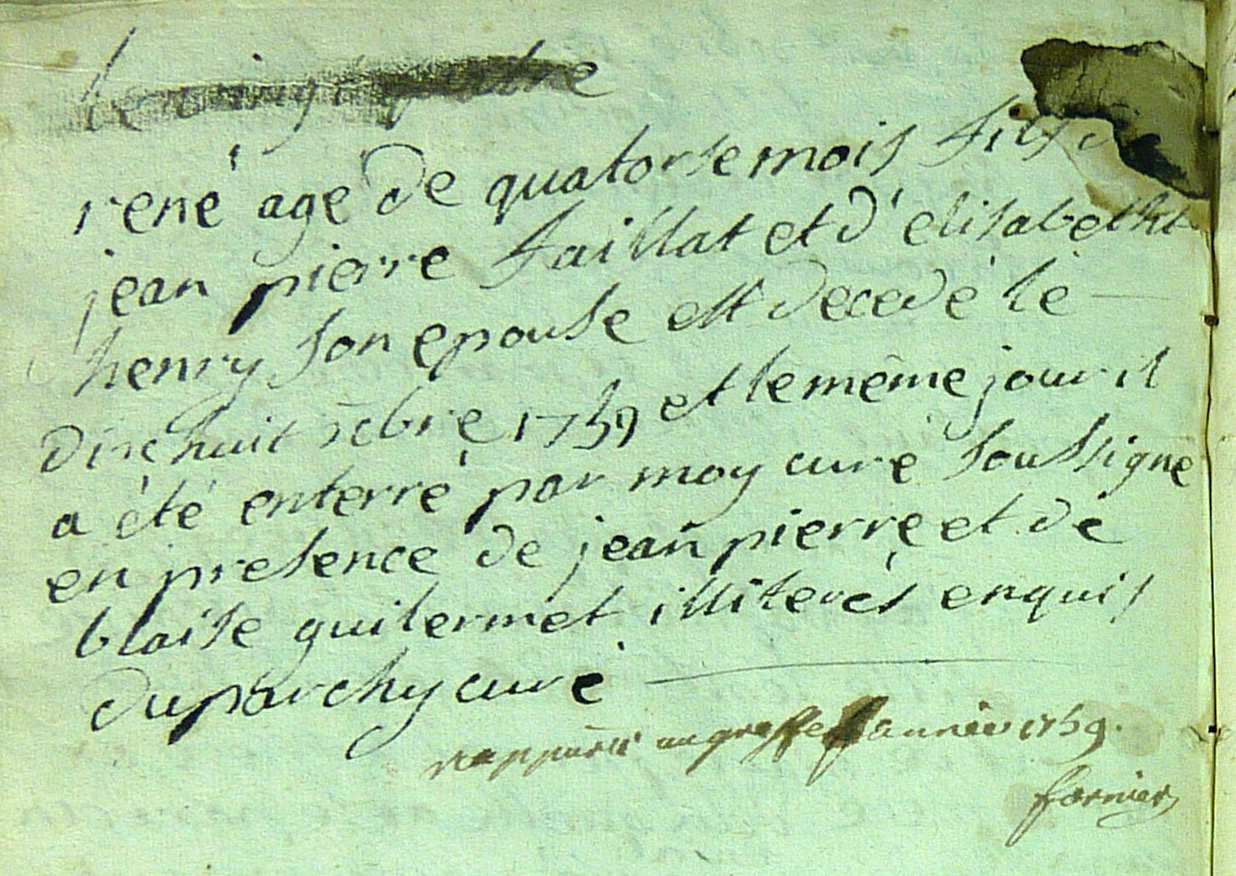 le vingt quatre
rené agé de quatorse mois fils de
jean pierre faillat et d'elisabetht
henry son epouse est decedé le
dixhuit xbre 1759 et le même jour il
a été enterré par moy curé soussigné
en presence de jean pierre et de
blaise guilermet illiterés enquis
duparchy curé
rapporté au greffe l'année 1759.
fornier